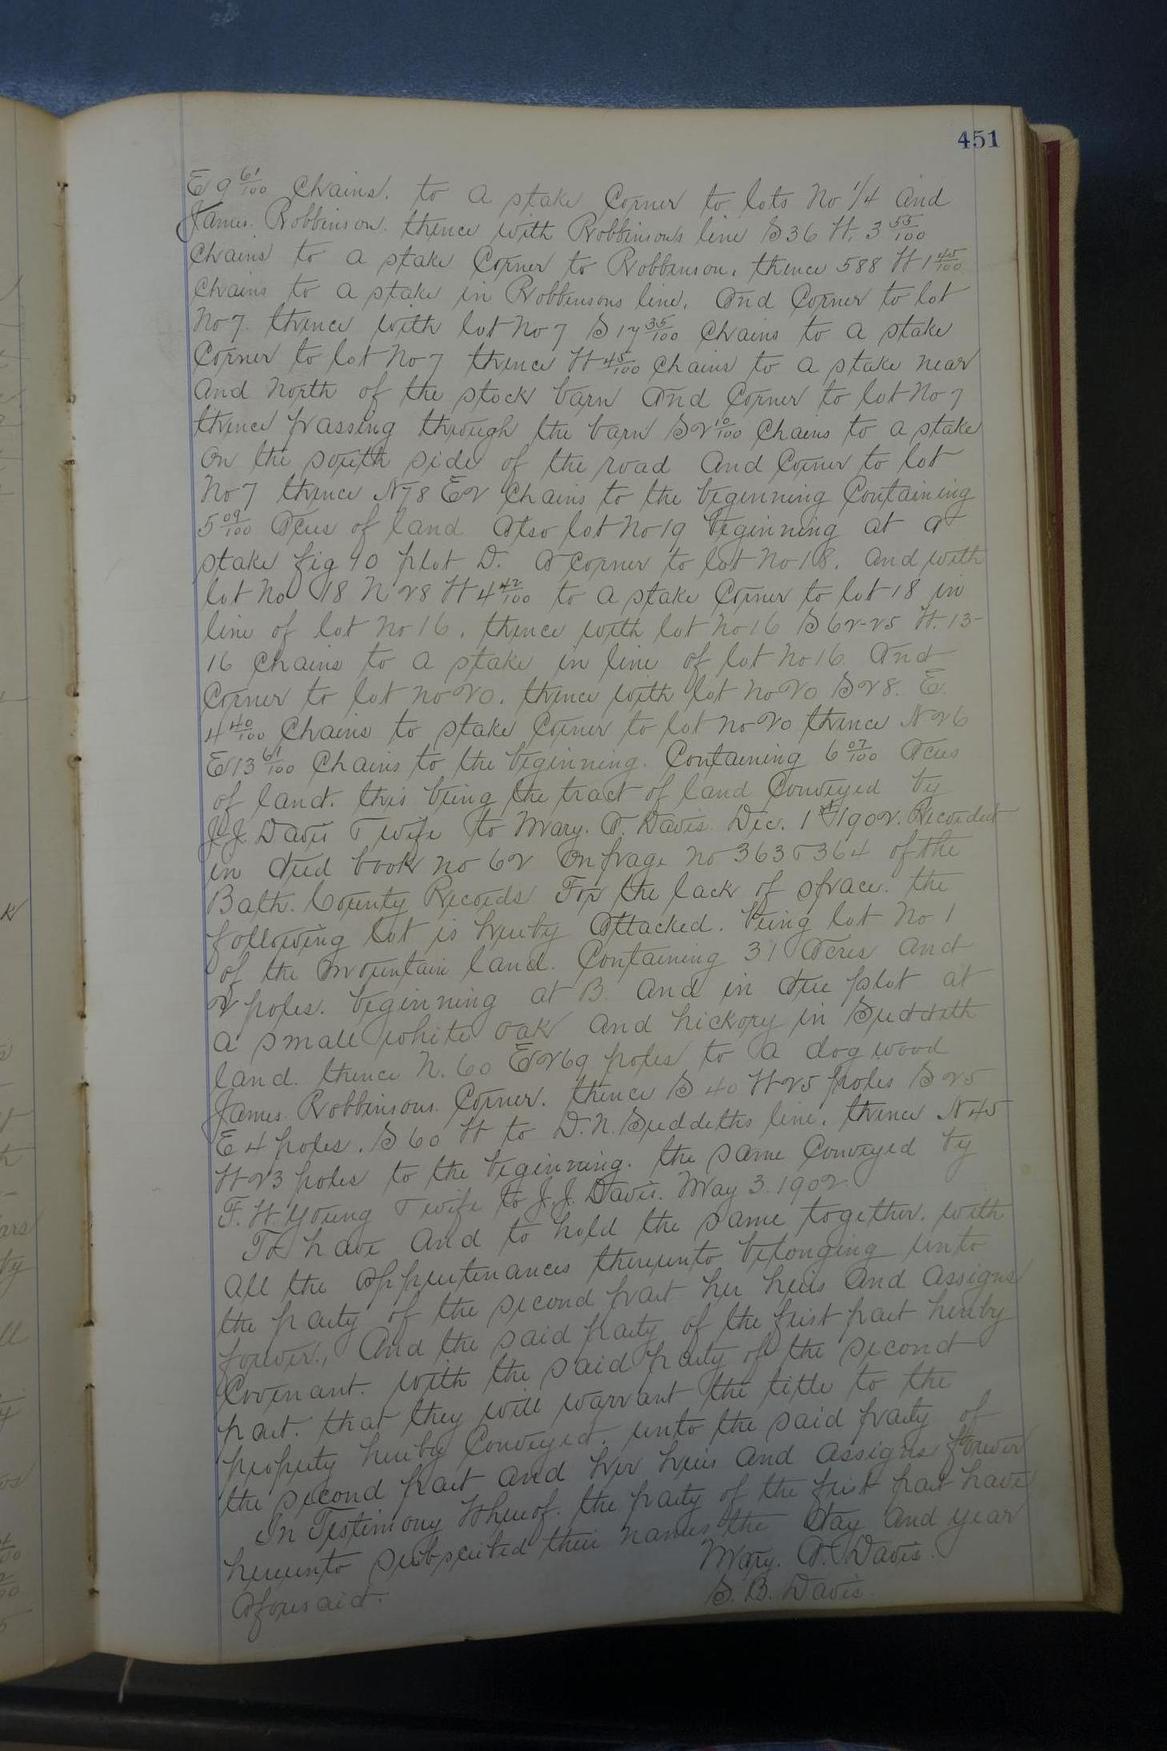 451
E 9 61/100 Chains. to a stake Corner to lots No 1/4 and
James. Robbinson. thence with Robbinsons line S 36 W. 3 55/100
Chains to a stake Corner to Robbinson. thence S88 W 1 45/100
Chains to a stake in Robbinsons line. and Corner to lot
No 7. thence with lot No 7 S 17 35/100 Chains to a stake
Corner to lot No 7 thence W 45/100 Chains to a stake near
and North of the stock barn and Corner to lot No 7
thence passing through the barn S 2 10/100 Chains to a stake
on the south side of the road and Corner to lot
No 7 thence N 78 E 2 Chains to the beginning Containing
5 09/100 Acres of land also lot No 19 beginning at a
stake fig 10 plot D. a corner to lot No 18. and with
lot No 18 N 28 W 4 42/100 to a stake Corner to lot 18 in
line of lot No 16. thence with lot No 16 S 62-25 W. 13-
16 Chains to a stake in line of lot No 16 and
Corner to lot no 20. thence with lot no 20 S 28. E.
4 40/100 Chains to stake Corner to lot no 20 thence N 26
E 13 61/100 Chains to the beginning. Containing 6 07/100 Acres
of land. this being the tract of land Conveyed by
J. J. Davis & wife to Mary. A. Davis. Dec. 1st 1902. Recorded
in deed book no 62 on page no 363 & 364 of the
Bath. County Records For the lack of space. the
following lot is hereby attacked. being lot No 1
of the mountain land. Containing 31 Acres and
2 poles. beginning at B. and in the plot at
a small white oak and hickory in Suddith
land. thence N. 60 E 269 poles to a dogwood
James. Robbinsons. Corner. thence S 40 W 25 poles S 25
E 4 poles. S 60 W to D. N. Suddeths line. thence N 45
W 23 poles to the beginning. the same Conveyed by
F. W. Young & wife to J. J. Davis. May 3. 1902.
To have and to hold the same together. with
all the appurtenances thereunto belonging unto
the party of the second part her heirs and assigns
forever., and the said party of the first part hereby
Covenant. with the said party of the second
part. that they will warrant the title to the
property hereby Conveyed. unto the said party of
the second part and her heirs and assigns forever
In Testimony Whereof. the party of the first part have
hereunto subscribed their names the day and year
aforesaid.
Mary. A. Davis.
S. B. Davis.